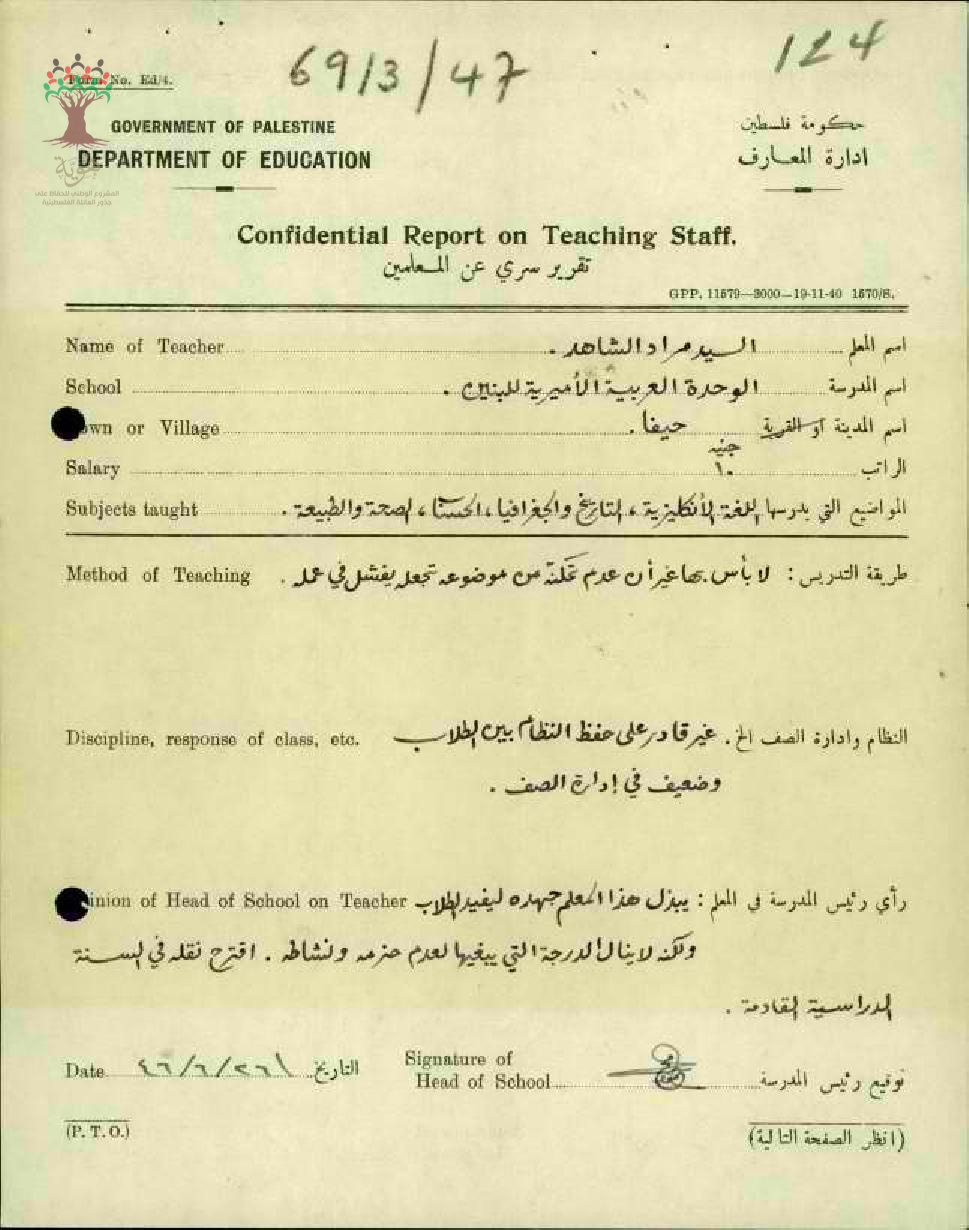 69/3/47
124
Form No. Ed/4.
GOVERNMENT OF PALESTINE
DEPARTMENT OF EDUCATION
حكومة فلسطين
ادارة المعارف
المشروع الوطني للحفاظ على
جذور العائلة الفلسطينية
Confidential Report on Teaching Staff.
تقرير سري عن المعلمين
GPP. 11579—3000—19-11-40 1570/S.
Name of Teacher السيد مراد الشاهد . اسم المعلم
School الوحدة العربية الأميرية للبنين . اسم المدرسة
Town or Village حيفا . اسم المدينة أو القرية
جنيه
Salary ١٠ الراتب
Subjects taught المواضيع التي يدرسها اللغة الأنكليزية ، التاريخ والجغرافيا ، الحساب ، الصحة والطبيعة .
Method of Teaching طريقة التدريس : لا بأس بها غير أن عدم تمكنه من موضوعه تجعله يفشل في عمله .
Discipline, response of class, etc. النظام وادارة الصف الخ . غير قادر على حفظ النظام بين الطلاب
وضعيف في إدارة الصف .
Opinion of Head of School on Teacher رأي رئيس المدرسة في المعلم : يبذل هذا المعلم جهده ليفيد الطلاب
ولكنه لا ينال الدرجة التي يبغيها لعدم حزمه ونشاطه . اقترح نقله في السنة
الدراسية القادمة .
Date التاريخ
Signature of
Head of School توقيع رئيس المدرسة
(P. T. O.)
(انظر الصفحة التالية)